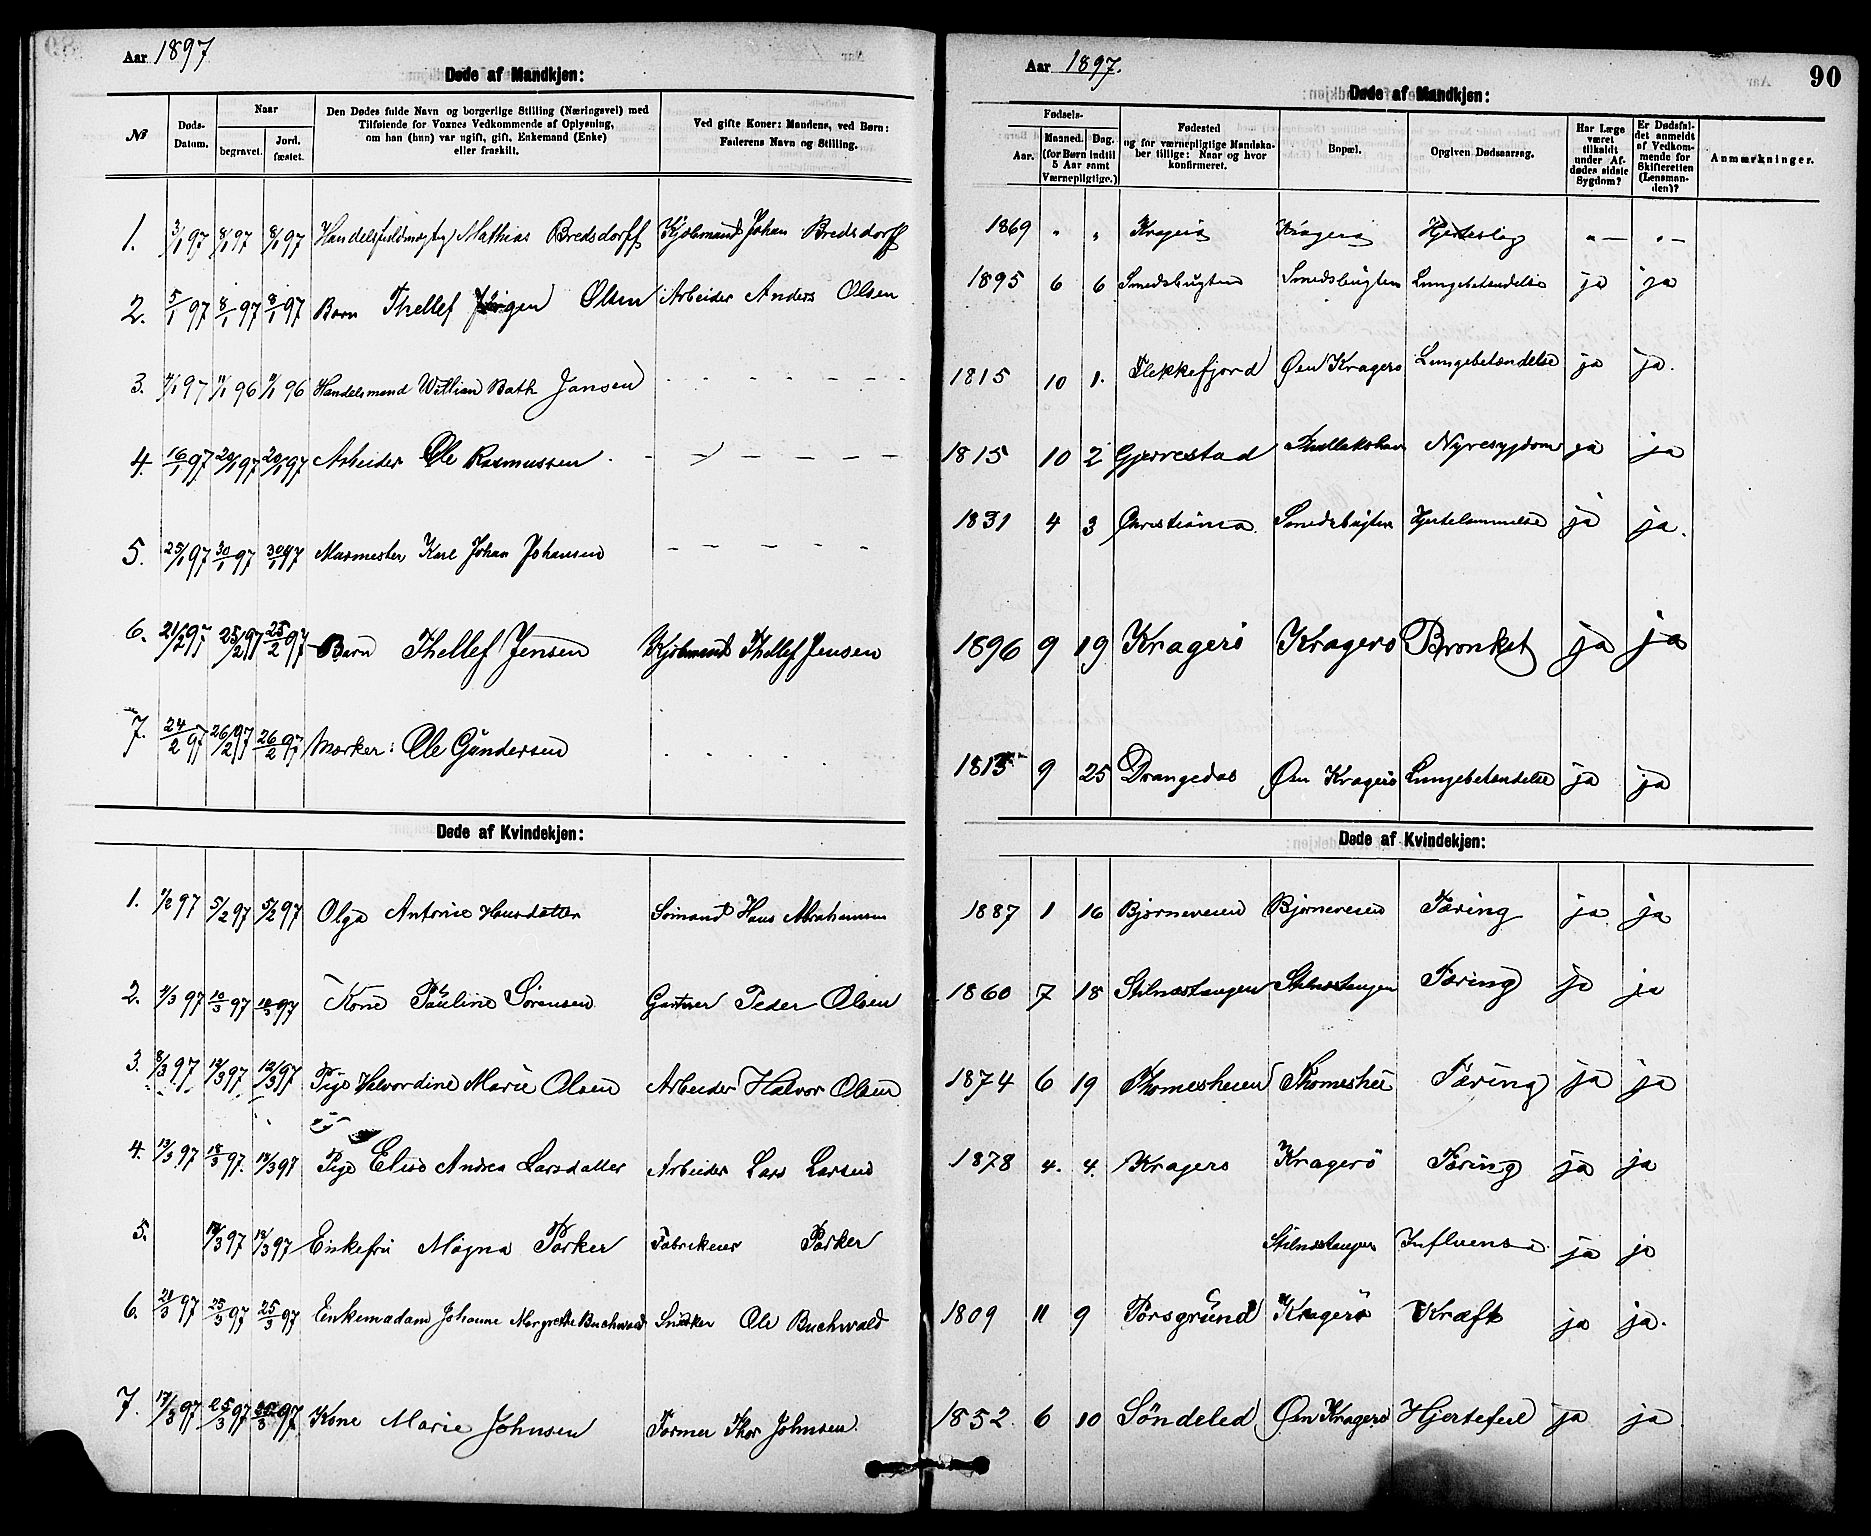 Aar 1897
Døde af Mandkjøn:
№
Døds-Datum.
Naar
begravet.
Jord. fæstet.
Den Dødes fulde Navn og borgerlige Stilling (Næringsvei) med
Tilføiende for Voxnes Vedkommende af Oplysning,
om han (hun) var ugift, gift, Enkemand (Enke)
eller fraskilt.
Ved gifte Koner: Mandens, ved Børn:
Faderens Navn og Stilling.
1. 3/1 97 8/1 97 8/1 97 Mathias Bredsdorff Johan Bredsdorff
2. 5/1 97 8/1 97 8/1 97 Barn Thellef Jörgen Olsen Arbeider Anders Olsen
3. 97 96 96 Handelsmand William Bath Jansen - - - - - - -
4. 16/1 97 20/1 97 20/1 97 Arbeider Ole Rasmussen - - - - - -
5. 25/1 97 30/1 97 30/1 97 Murmester Karl Johan Johansen - - - - -
6. 21/2 97 25/2 97 25/2 97 Barn Thellef Jensen Thellef Jensen
7. 24/2 97 26/2 97 26/2 97 Ole Gündersen
Døde af Kvindekjøn:
1. 1/2 97 5/2 97 5/2 97 Olga Antonie Hansdatter Sömand Hans Abrahamsen
2. 97 10/3 97 97 Kone Pauline Sørensen Gartner Peder Olsen
3. 8/3 97 12/3 97 12/3 97 Pige Halvordine Marie Olsen Arbeider Halvor Olsen
4. 13/3 97 18/3 97. 18/3 97 Pige Elise Andrea Larsdatter Arbeider Lars Larsen
5. 18/3 97 18/3 97 Enkefru Magna Parker Fabrikeier Parker
6. 97 25/3 97 25/3 97 Enkemadam Johanne Margrethe Buchwald Snedker Ole Buchwald
7. 17/3 97 25/3 97 97 Kone Marie Johnsen Former Thor Johnsen
Aar 1897.
Døde af Mandkjøn:
90
Fødsels-
Aar.
Maaned. Dag.
(for Børn indtil
5 Aar samt
Værnepligtige.)
Fødested
og for værnepligtige Mandska-
ber tillige: Naar og hvor
konfirmeret.
Bopæl.
Opgiven Dødsaarsag.
Har Læge
været
tilkaldt
under Af-
dødes sidste
Sygdom?
Er Dødsfal-
det anmeldt
af Vedkom-
mende for
Skifteretten
(Lensman-
den)?
Anmærkninger.
1869 " " Kragerö Kragerö Hjerteslag " — " —
1895 6 6 Smedsbugten Smedsbugten Lungebetændelse ja ja
1815 10 1. Flekkefjord Øen Kragerø Lungebetændelse ja ja.
1815 10 2 Gjerrestad Nyresygdom ja ja
1831 4 3 Christiania Smedsbugten Hjertelammelse ja ja.
1896 9 19 Kragerö Kragerø Bronket ja ja
1815 9 25 Drangedal Øen Kragerö Lungebetændelse ja ja
Døde af Kvindekjøn:
1887 1 16 Bjørneveien Bjørneveien Tæring ja ja
1860 7 18 Stilnæstangen Stilnæstangen Tæring ja ja
1874 6 19 Thomesheien Thomeshei Tæring ja ja
1878 4. 4. Kragerø Kragerö Tæring ja ja
Stilnæstangen Influensa ja ja
1809 11 9 Porsgrund Kragerø Kræft ja ja.
1852 6 10 Söndeled Øen Kragerø Hjertefeil ja ja